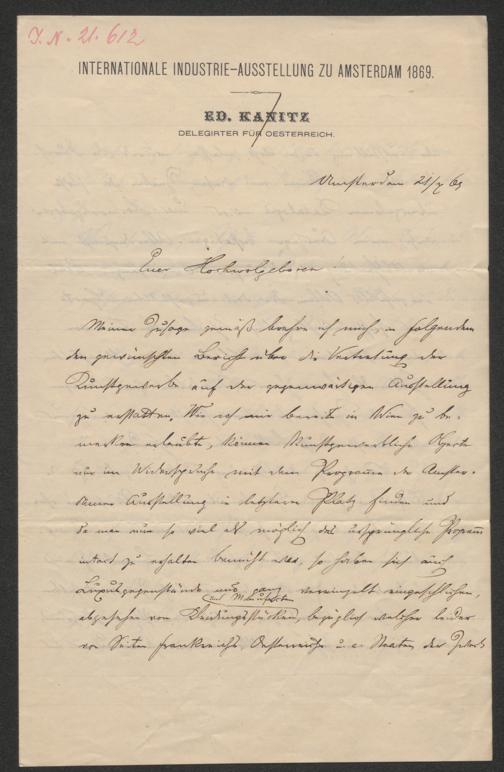 I. N. 21.612
INTERNATIONALE INDUSTRIE-AUSSTELLUNG ZU AMSTERDAM 1869.
ED. KANITZ
DELEGIRTER FÜR OESTERREICH.
Amsterdam 21/7 69
Euer Hochwolgeboren
Meiner Zusage gemäß beehre ich mich, in Folgendem
den gewünschten Bericht über die Vertretung der
Kunstgewerbe auf der gegenwärtigen Ausstellung
zu erstatten. Wie ich mir bereits in Wien zu be-
merken erlaubte, können Kunstgewerbliche Objecte
nur im Widerspruche mit dem Programm der Amster-
damer Ausstellung in letzterer Platz finden und
da man nun so viel als möglich das ursprüngliche Programm
intact zu erhalten bemüht war, so haben sich auch
Luxusgegenstände nur ganz vereinzelt eingeschlichen,
abgesehen von Kleidungsstücken, bezüglich welcher leider
von Seiten Frankreichs, Oesterreichs u. a. Staaten der Zweck